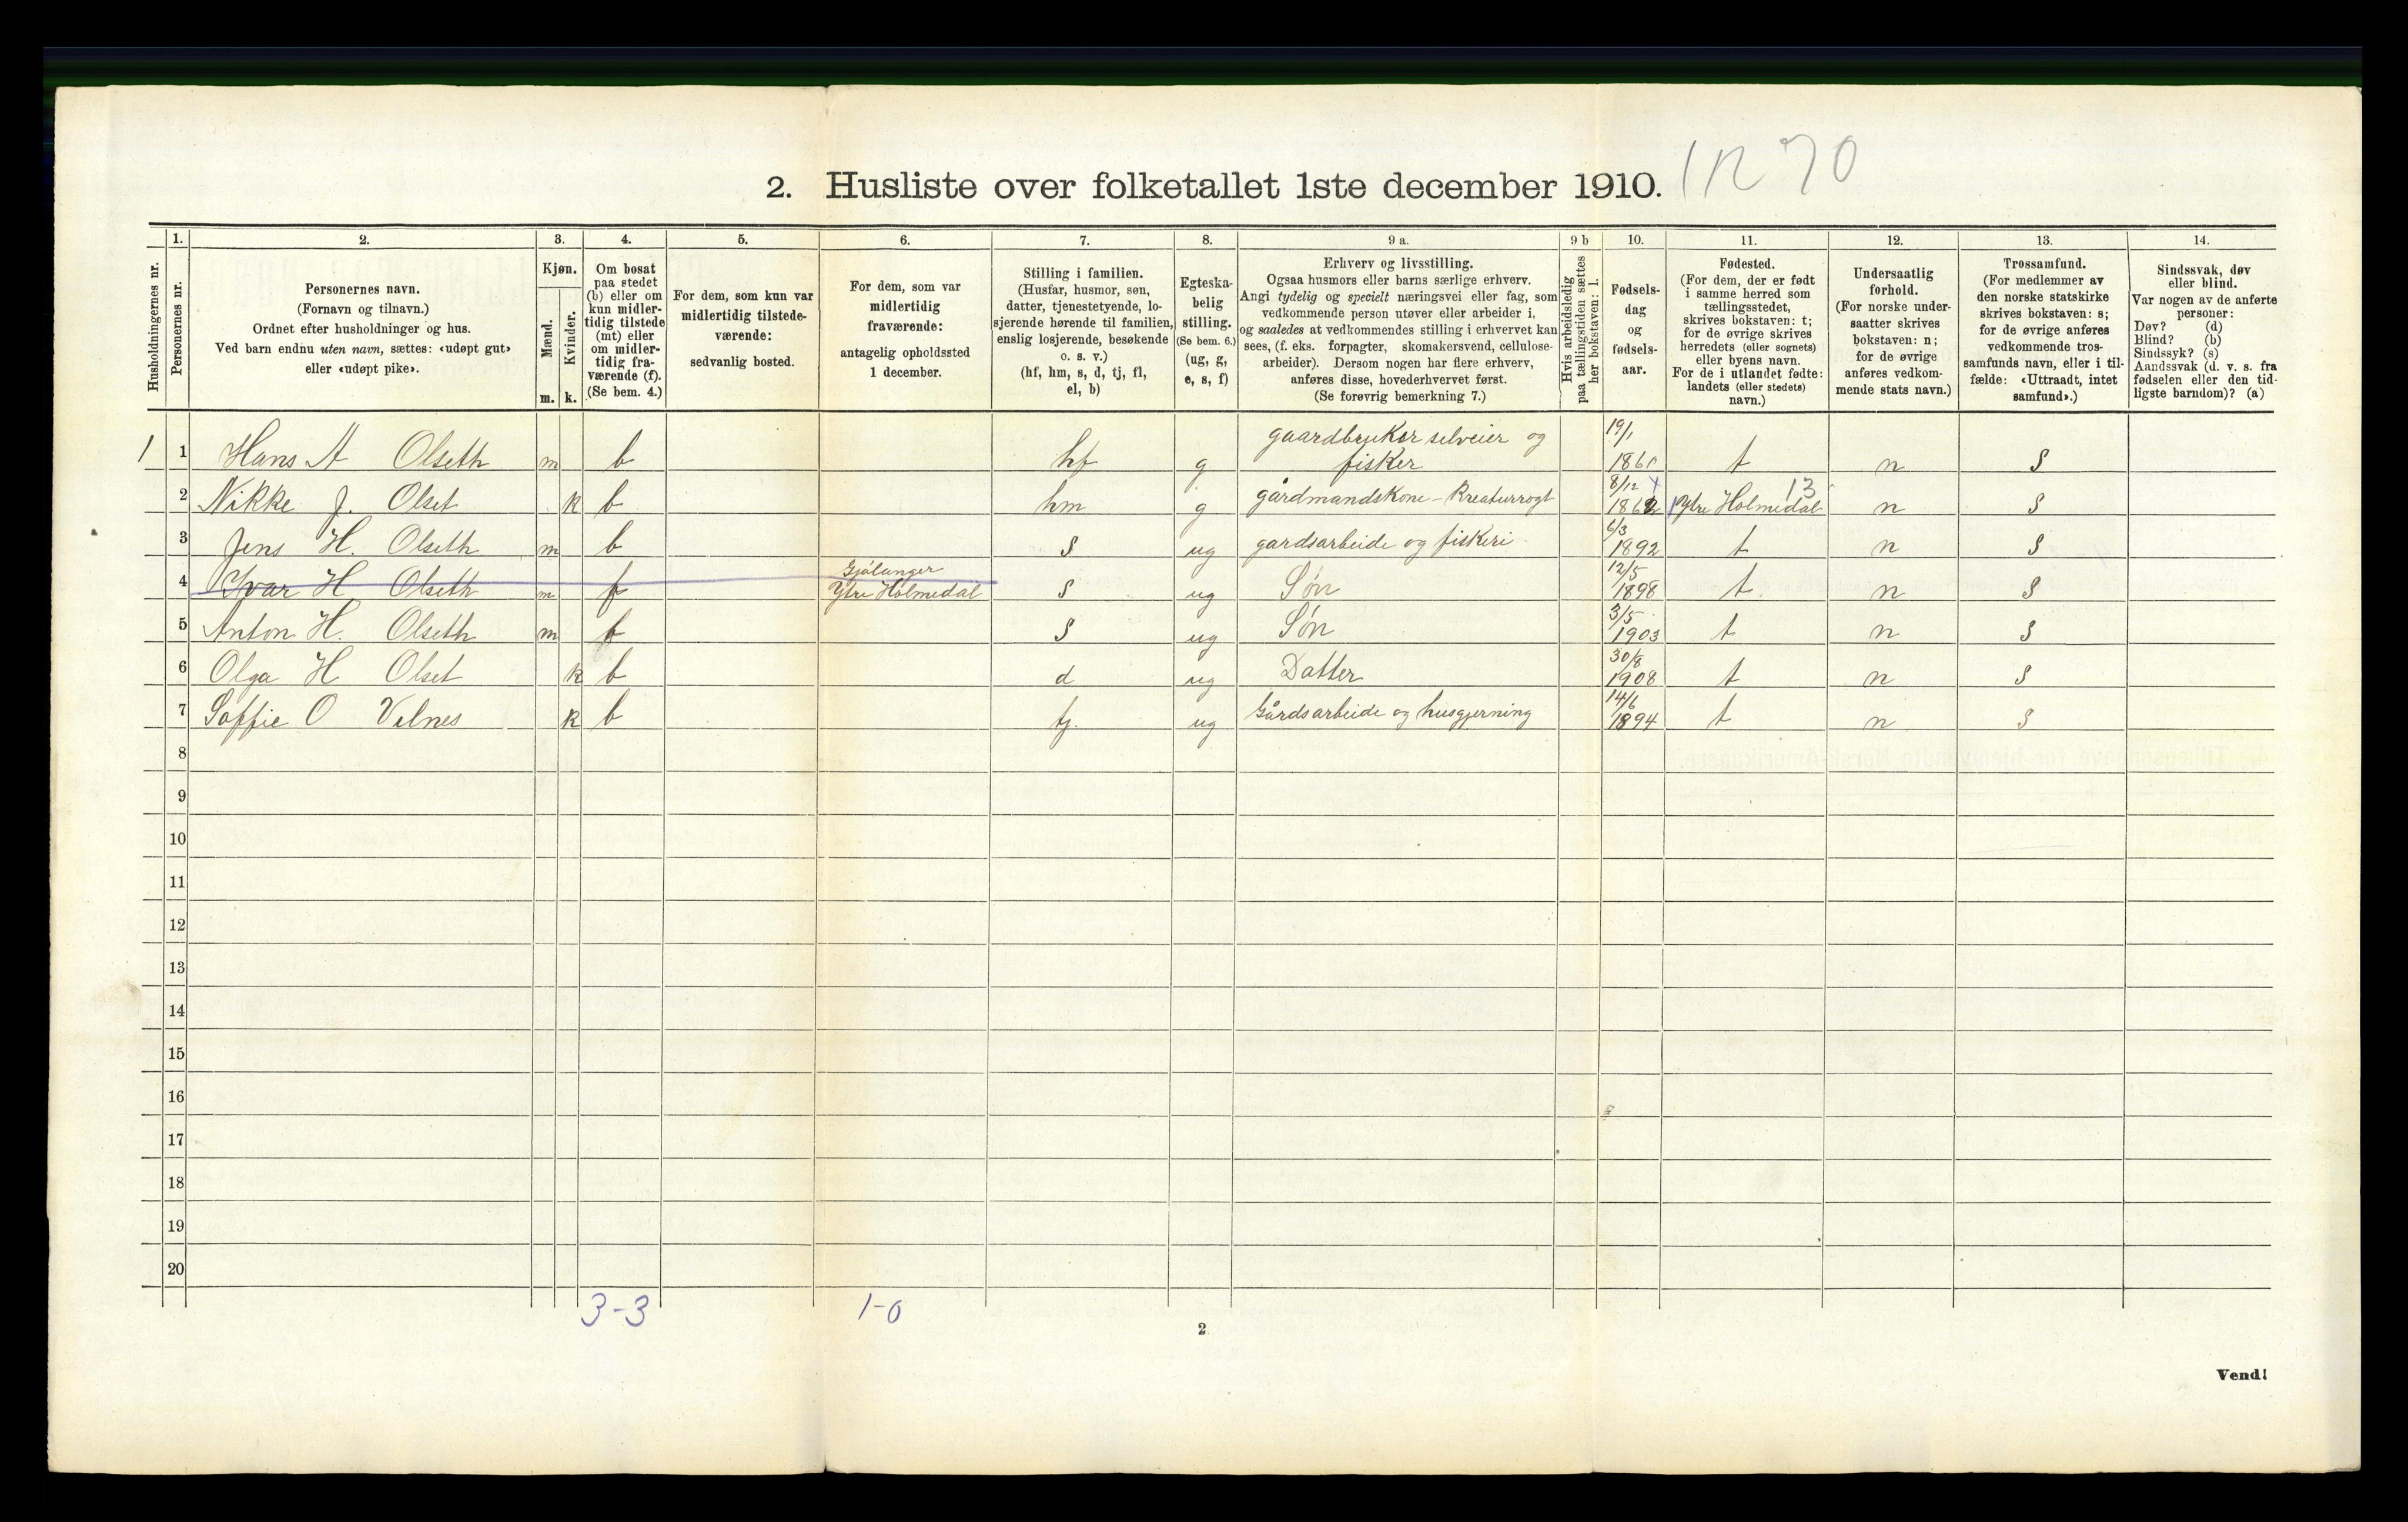 2. Husliste over folketallet 1ste december 1910.
Husholdningernes nr.
1.
Personernes nr.
2.
Personernes navn.
(Fornavn og tilnavn.)
Ordnet efter husholdninger og hus.
Ved barn endnu uten navn, sættes: «udøpt gut»
eller «udøpt pike».
3.
Kjøn.
Mænd.
Kvinder.
m. k.
4.
Om bosat
paa stedet
(b) eller om
kun midler-
tidig tilstede
(mt) eller
om midler-
tidig fra-
værende (f).
(Se bem. 4.)
5.
For dem, som kun var
midlertidig tilstede-
værende:
sedvanlig bosted.
6.
For dem, som var
midlertidig
fraværende:
antagelig opholdssted
1 december.
7.
Stilling i familien.
(Husfar, husmor, søn,
datter, tjenestetyende, lo-
sjerende hørende til familien,
enslig losjerende, besøkende
o. s. v.)
(hf, hm, s, d, tj, fl,
el, b)
8.
Egteska-
belig
stilling.
(Se bem. 6.)
(ug, g,
e, s, f)
9 a.
Erhverv og livsstilling.
Ogsaa husmors eller barns særlige erhverv.
Angi tydelig og specielt næringsvei eller fag, som
vedkommende person utøver eller arbeider i,
og saaledes at vedkommendes stilling i erhvervet kan
sees, (f. eks. forpagter, skomakersvend, cellulose-
arbeider). Dersom nogen har flere erhverv,
anføres disse, hovederhvervet først.
(Se forøvrig bemerkning 7.)
9 b
Hvis arbeidsledig
paa tællingstiden sættes
her bokstaven: l.
10.
Fødsels-
dag
og
fødsels-
aar.
11.
Fødested.
(For dem, der er født
i samme herred som
tællingsstedet,
skrives bokstaven: t;
for de øvrige skrives
herredets (eller sognets)
eller byens navn.
For de i utlandet fødte:
landets (eller stedets)
navn.)
12.
Undersaatlig
forhold.
(For norske under-
saatter skrives
bokstaven: n;
for de øvrige
anføres vedkom-
mende stats navn.)
13.
Trossamfund.
(For medlemmer av
den norske statskirke
skrives bokstaven: s;
for de øvrige anføres
vedkommende tros-
samfunds navn, eller i til-
fælde: «Uttraadt, intet
samfund».)
14.
Sindssvak, døv
eller blind.
Var nogen av de anførte
personer:
Døv? (d)
Blind? (b)
Sindssyk? (s)
Aandssvak (d. v. s. fra
fødselen eller den tid-
ligste barndom)? (a)
1 1 Hans A Olseth m b hf g gaardbruker selveier og
fisker 19/1
1861 t n S
2 Nikke J. Olset k b hm g gårdmandskone - Kreaturrogt 8/12
1862 Ytre Holmedal 13 n S
3 Jens H. Olseth m b S ug gardsarbeide og fiskeri 6/3
1892 t n S
4 Ivar H Olseth m f Gjølanger
Ytre Holmedal S ug Søn 12/5
1898 t n S
5 Anton H. Olseth m b S ug Søn 3/5
1903 t n S
6 Olga H Olset k b d ug Datter 30/8
1908 t n S
7 Soffie O Vilnes k b tj. ug Gårdsarbeide og husgjerning 14/6
1894 t n S
8
9
10
11
12
13
14
15
16
17
18
19
20
3-3 1-0
2
Vend!